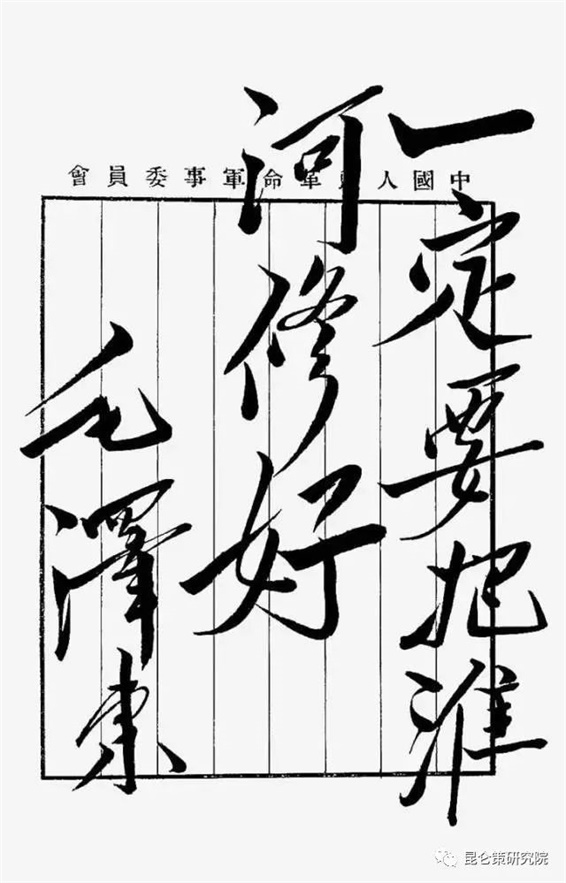 中國人民革命軍事委員會
一定要把淮
河修好
毛澤東
昆仑策研究院